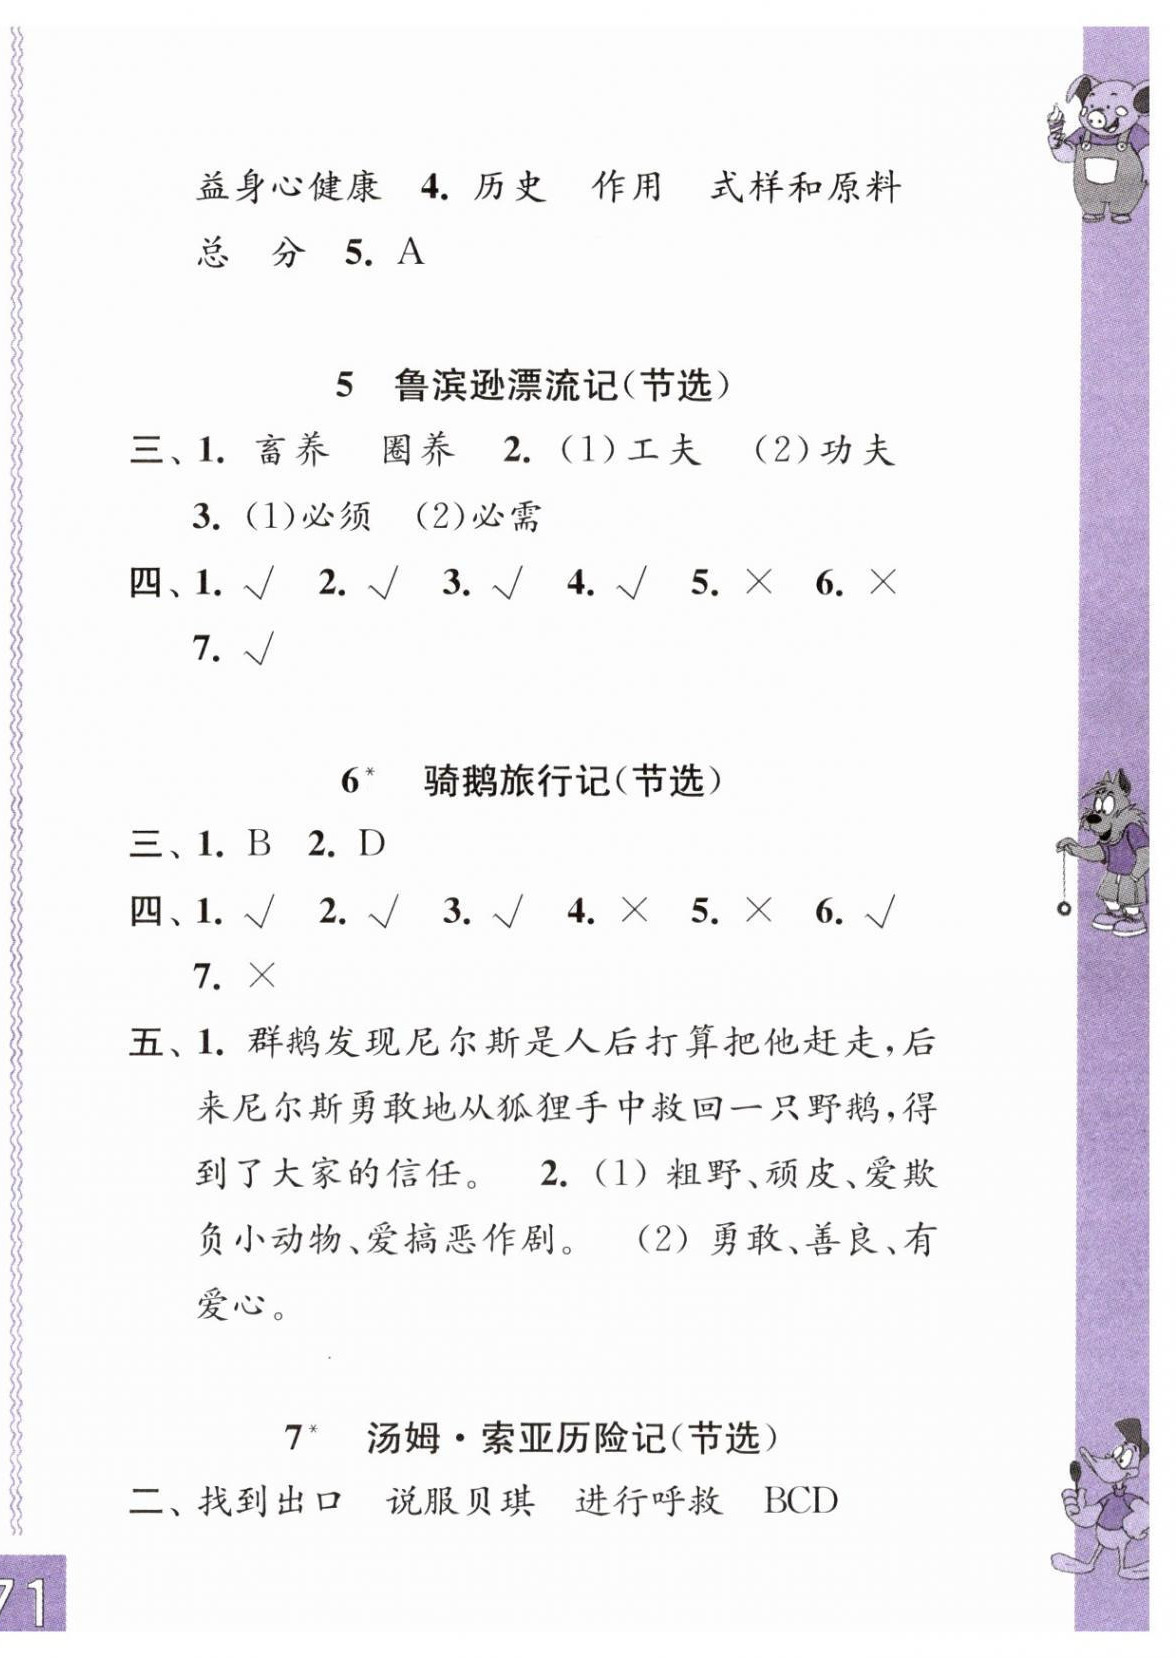 益身心健康 4. 历史 作用 式样和原料
总 分 5. A
5 鲁滨逊漂流记(节选)
三、1. 畜养 圈养 2. (1)工夫 (2)功夫
3. (1)必须 (2)必需
四、1. √ 2. √ 3. √ 4. √ 5. × 6. ×
7. √
6* 骑鹅旅行记(节选)
三、1. B 2. D
四、1. √ 2. √ 3. √ 4. × 5. × 6. √
7. ×
五、1. 群鹅发现尼尔斯是人后打算把他赶走,后
来尼尔斯勇敢地从狐狸手中救回一只野鹅,得
到了大家的信任。 2. (1) 粗野、顽皮、爱欺
负小动物、爱搞恶作剧。 (2) 勇敢、善良、有
爱心。
7* 汤姆·索亚历险记(节选)
二、找到出口 说服贝琪 进行呼救 BCD
71